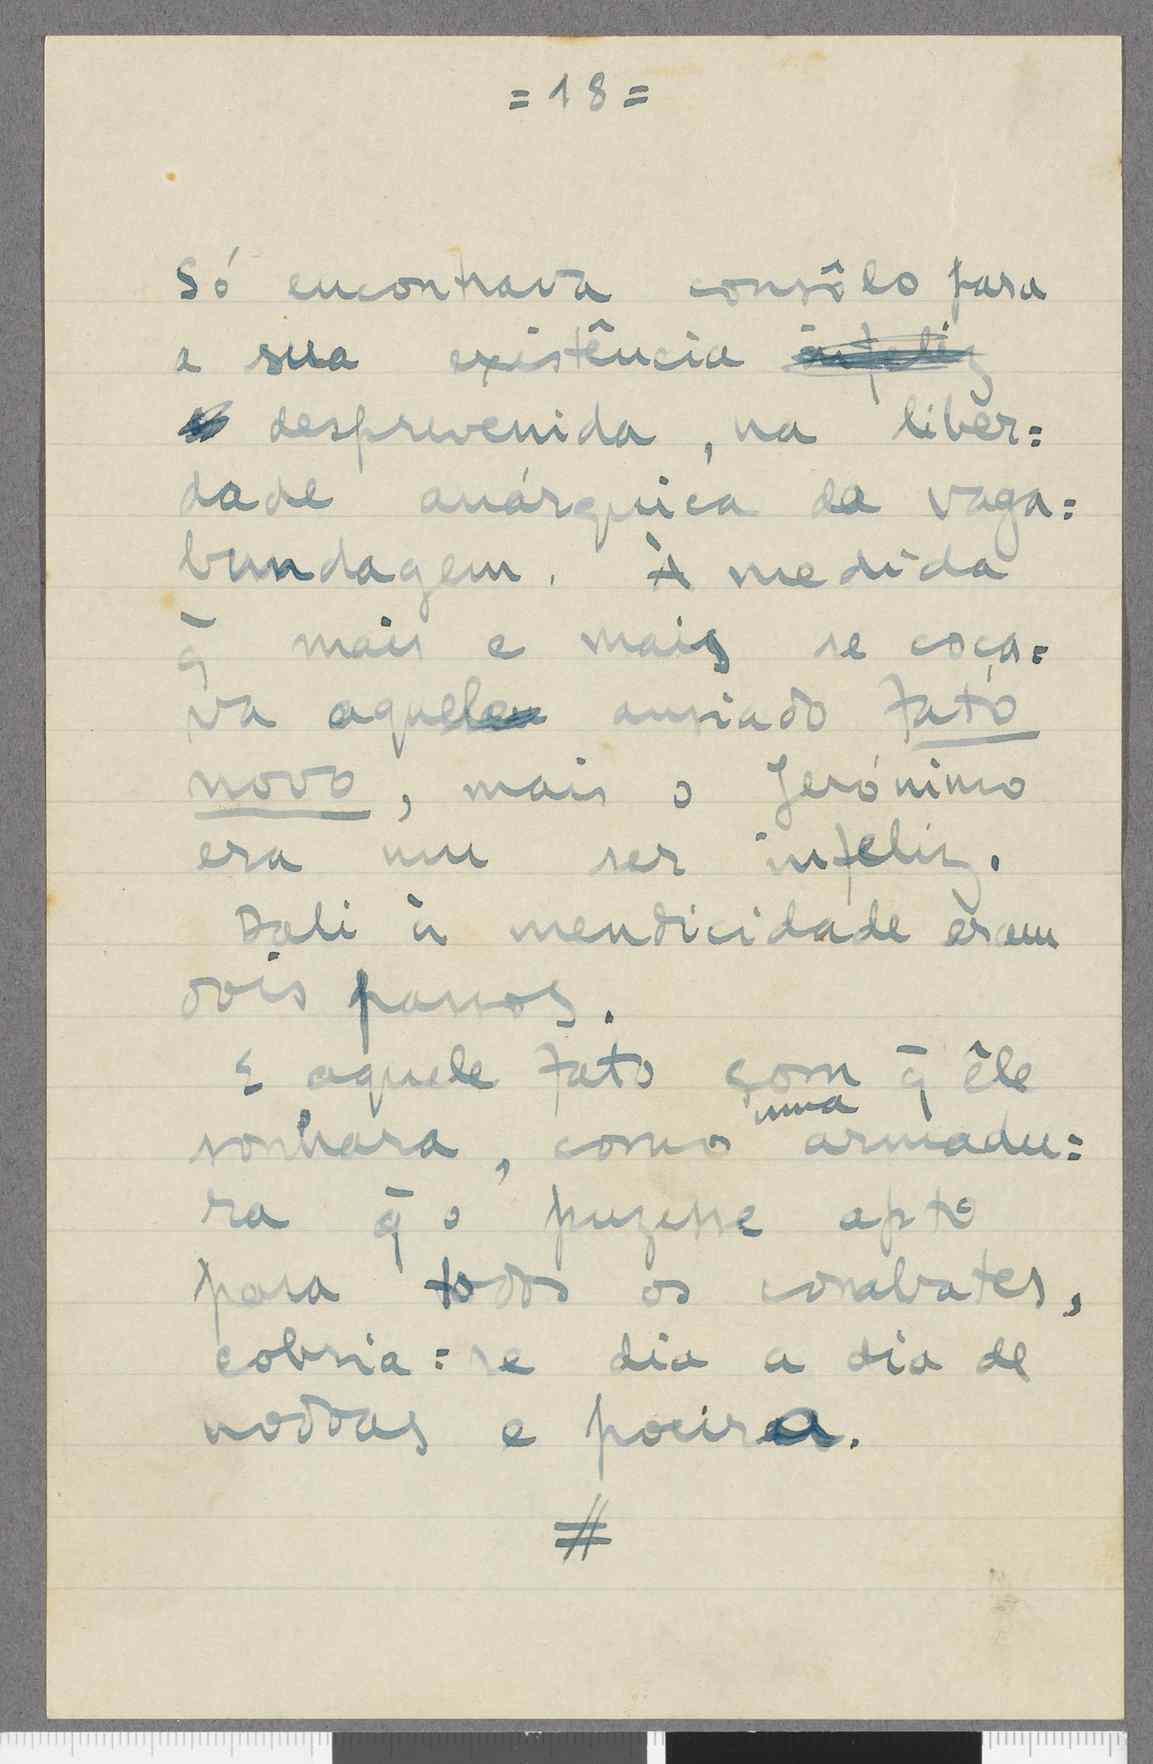 =18=
Só encontrava consôlo para
a sua existência infeliz
desprevenida, na liber=
dade anárquica da vaga=
bundagem. À medida
q̄ mais e mais se coça=
va aquele ansiado fato
novo, mais o Jerónimo
era um ser infeliz.
Dali à mendicidade eram
dois passos.
E aquele fato com q̄ êle
uma
sonhara, como armadu=
ra q̄ o puzesse apto
para todos os combates,
cobria=se dia a dia de
nodoas e poeira.
#